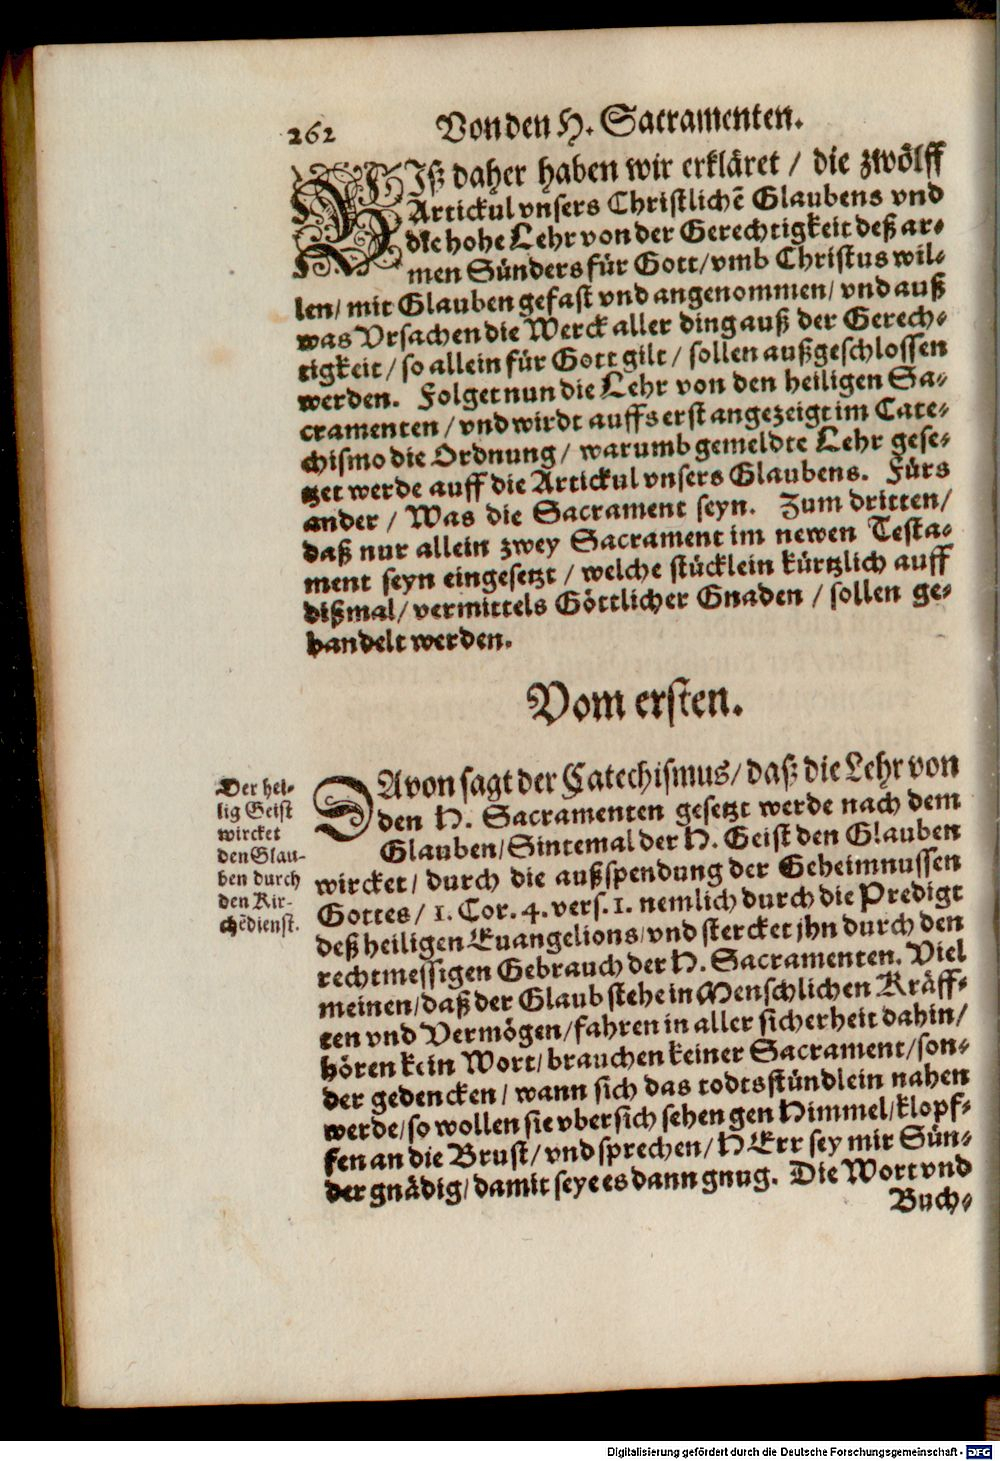 262 Von den H. Sacramenten.
BIß daher haben wir erkläret / die zwölff
Artickul vnsers Christlichẽ Glaubens vnd
die hohe Lehr von der Gerechtigkeit deß ar-
men Sünders für Gott / vmb Christus wil-
len / mit Glauben gefast vnd angenommen / vnd auß
was Vrsachen die Werck aller ding auß der Gerech-
tigkeit / so allein für Gott gilt / sollen außgeschlossen
werden. Folget nun die Lehr von den heiligen Sa-
cramenten / vnd wirdt auffs erst angezeigt im Cate-
chismo die Ordnung / warumb gemeldte Lehr gese-
tzet werde auff die Artickul vnsers Glaubens. Fürs
ander / Was die Sacrament seyn. Zum dritten /
daß nur allein zwey Sacrament im newen Testa-
ment seyn eingesetzt / welche stücklein kürtzlich auff
dißmal / vermittels Göttlicher Gnaden / sollen ge-
handelt werden.
Vom ersten.
DAvon sagt der Catechismus / daß die Lehr von
den H. Sacramenten gesetzt werde nach dem
Glauben / Sintemal der H. Geist den Glauben
wircket / durch die außspendung der Geheimnussen
Gottes / 1. Cor. 4. vers. 1. nemlich durch die Predigt
deß heiligen Euangelions / vnd stercket jhn durch den
rechtmessigen Gebrauch der H. Sacramenten. Viel
meinen / daß der Glaub stehe in Menschlichen Kräff-
ten vnd Vermögen / fahren in aller sicherheit dahin /
hören kein Wort / brauchen keiner Sacrament / son-
der gedencken / wann sich das todtsstündlein nahen
werde / so wollen sie vber sich sehen gen Himmel / klopf-
fen an die Brust / vnd sprechen / HErr sey mir Sün-
der gnädig / damit seye es dann gnug. Die Wort vnd
Buch-
Der hei-
lig Geist
wircket
den Glau-
ben durch
den Kir-
chẽdienst.
Digitalisierung gefördert durch die Deutsche Forschungsgemeinschaft - DFG